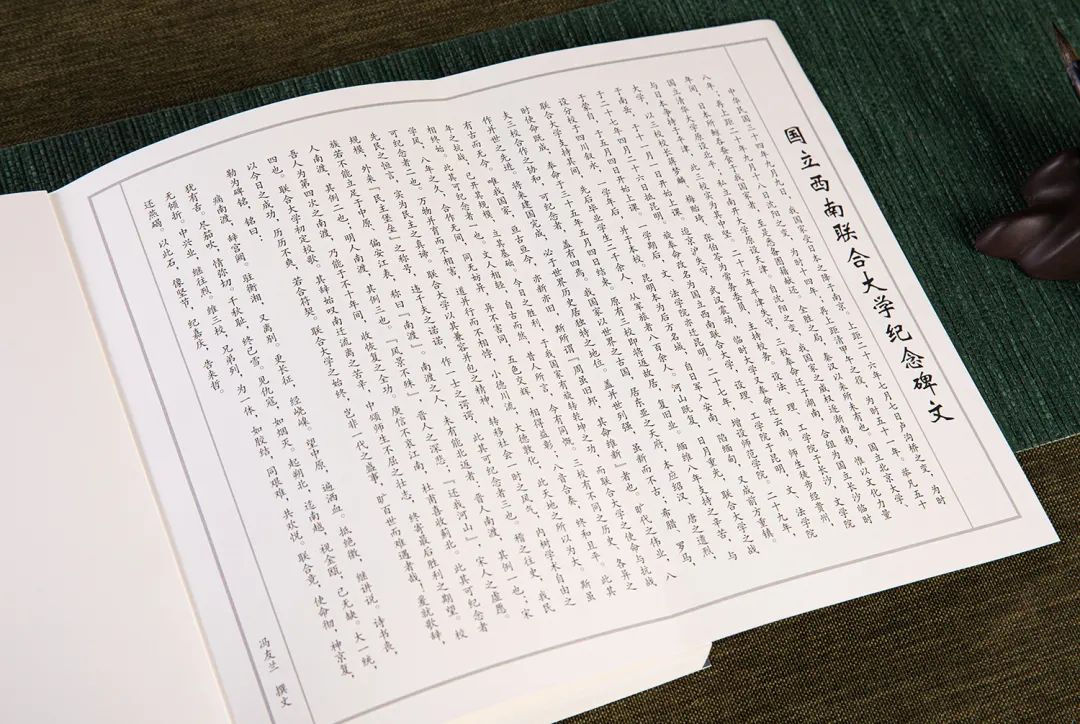 国立西南联合大学纪念碑文
中华民国三十四年九月九日，我国家受日本之降于南京。上距二十六年七月七日卢沟桥之变，为时
八年；再上距二十年九月十八日沈阳之变，为时十四年；再上距清甲午之役，为时五十一年。举凡五十
年间，日本所鲸吞蚕食于我国家者，至是悉备图籍献还。全胜之局，秦汉以来所未有也。国立北京大学、
国立清华大学原设北平，私立南开大学原设天津。自沈阳之变，我国家之威权逐渐南移，惟以文化力量
与日本争持于平津，此三校实为其中坚。二十六年平津失守，三校奉命迁于湖南，合组为国立长沙临时
大学，以三校校长蒋梦麟、梅贻琦、张伯苓为常务委员，主持校务。设法、理、工学院于长沙，文学院
于南岳，于十一月一日开始上课。迨京沪失守，武汉震动，临时大学又奉命迁云南。师生徒步经贵州，
于二十七年四月二十六日抵昆明。旋奉命改名为国立西南联合大学，设理、工学院于昆明，文、法学院
于蒙自，于五月四日开始上课。一学期后，文、法学院亦迁昆明。二十七年，增设师范学院。二十九年，
设分校于四川叙永，一学年后，并于本校。昆明本为后方名城，自日军入安南，陷缅甸，又成前方重镇。
联合大学支持其间，先后毕业学生二千余人，从军旅者八百余人。河山既复，日月重光，联合大学之战
时使命既成，奉命于三十五年五月四日结束。原有三校即将返故居，复旧业。缅维八年支持之苦辛，与
夫三校合作之协和，可纪念者，盖有四焉：我国家以世界之古国，居东亚之天府，本应绍汉、唐之遗烈，
作并世之先进。将来建国完成，必于世界历史居独特之地位。盖并世列强，虽新而不古；希腊、罗马，
有古而无今。唯我国家，亘古亘今，亦新亦旧，斯所谓『周虽旧邦，其命维新』者也。旷代之伟业，八
年之抗战，已开其规模，立其基础。今日之胜利，于我国家有旋转乾坤之功，而联合大学之使命与抗战
相终始。此其可纪念者一也。文人相轻，自古而然，昔人所言，今有同慨。三校有不同之历史，各异之
学风，八年之久，合作无间，同无妨异，异不害同，五色交辉，相得益彰，八音合奏，终和且平。此其
可纪念者二也。万物并育而不相害，道并行而不相悖，小德川流，大德敦化，此天地之所以为大。斯虽
先民之恒言，实为民主之真谛。联合大学以其兼容并包之精神，转移社会一时之风气，内树学术自由之
规模，外来『民主堡垒』之称号，违千夫之诺诺，作一士之谔谔。此其可纪念者三也。稽之往史，我民
族若不能立足于中原，偏安江表，称曰『南渡』。南渡之人，未有能北返者：晋人南渡，其例一也；宋
人南渡，其例二也；明人南渡，其例三也。『风景不殊』，晋人之深悲；『还我河山』，宋人之虚愿。
吾人为第四次之南渡，乃能于不十年间，收恢复之全功。庾信不哀江南，杜甫喜收蓟北。此其可纪念者
四也。联合大学初定校歌，其辞始叹南迁流离之苦辛，中颂师生不屈之壮志，终寄最后胜利之期望。校
以今日之成功，历历不爽，若合符契。联合大学之终始，岂非一代之盛事，旷百世而难遇者哉！爰就歌辞，
勒为碑铭。铭曰：
痛南渡，辞宫阙。驻衡湘，又离别。更长征，经峣嵲。望中原，遍洒血。抵绝徼，继讲说。诗书丧，
犹有舌。尽笳吹，情弥切。千秋耻，终已雪。见仇寇，如烟灭。起朔北，迄南越，视金瓯，已无缺。大一统，
无倾折。中兴业，继往烈。维三校，兄弟列，为一体，如胶结，同艰难，共欢悦。联合竟，使命彻，神京复，
还燕碣。以此石，像坚节，纪嘉庆，告来哲。
冯友兰 撰文